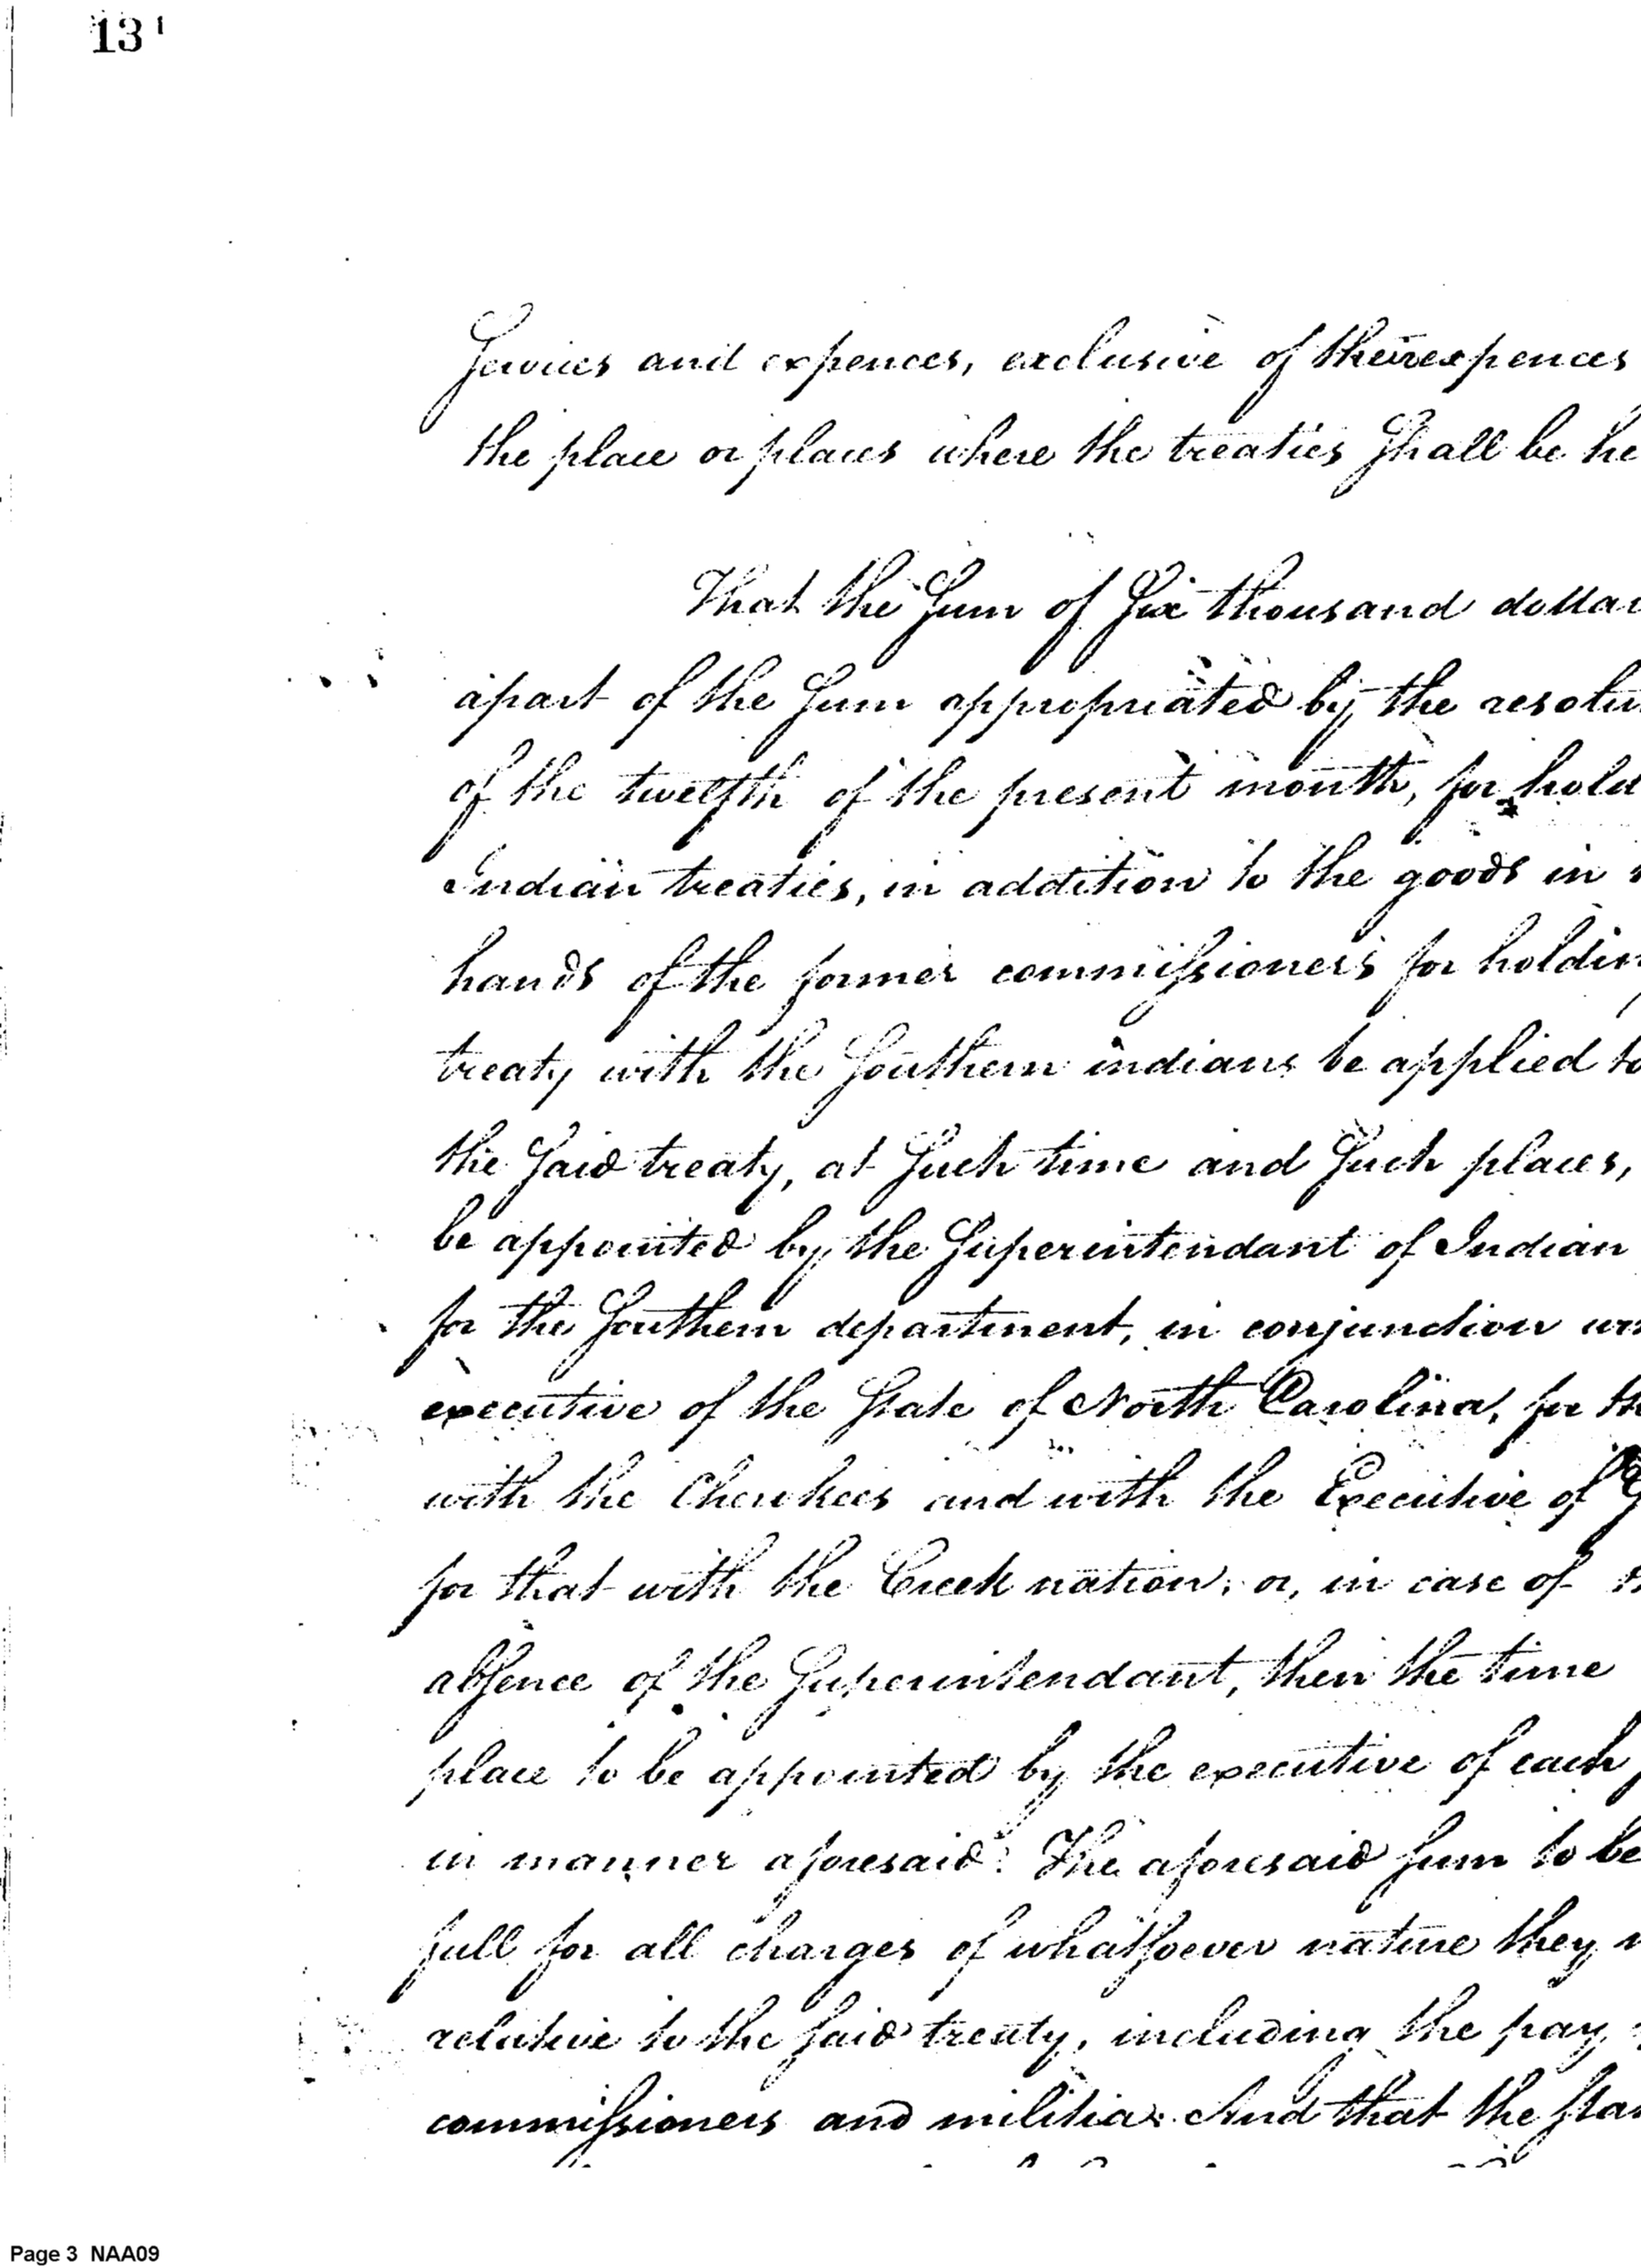 13
Services and expences, exclusive of their expences
the place or places where the treaties Shall be he
That the Sum of Six thousand dollar
apart of the Sum appropriated by the resolu
of the twelfth of the present month, for hold
Indian treaties, in addition to the goods in
hands of the former commissioners for holdin
treaty with the Southern indians be applied to
the Said treaty, at Such time and Such places,
be appointed by the Superintendant of Indian
for the Southern department, in conjunction wi
executive of the State of North Carolina, for th
with the Cherokees and with the Executive of G
for that with the Creek nation; or, in case of th
absence of the Superintendant, then the time
place to be appointed by the executive of each
in manner aforesaid: The aforesaid Sum to be
full for all charges of whatsoever nature they
relative to the Said treaty, including the pay
commissioners and militia: And that the sta
Page 3 NAA09